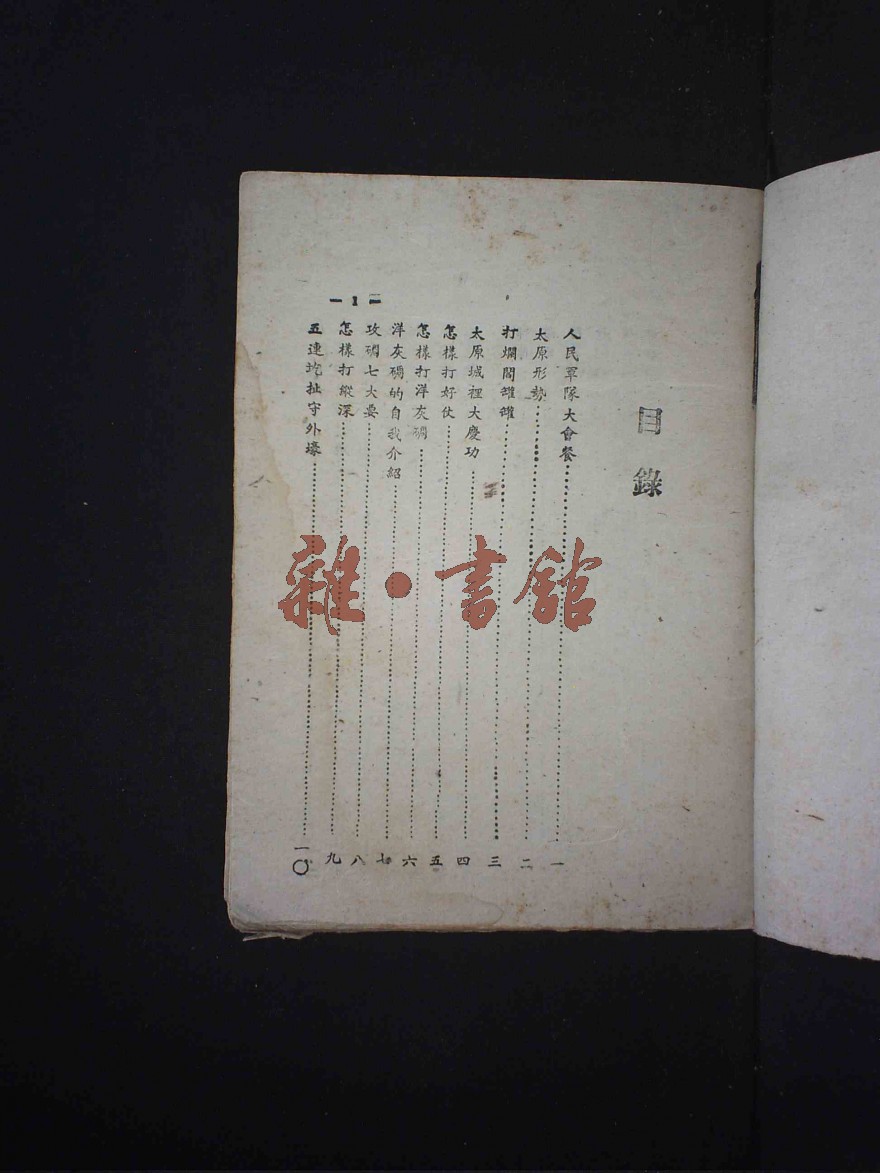 目錄
人民軍隊大會餐……一
太原形勢……二
打爛閻罐罐……三
太原城裡大慶功……四
怎樣打好仗……五
怎樣打洋灰碉……六
洋灰碉的自我介紹……七
攻碉七大要……八
怎樣打縱深……九
五連圪扯守外壕……一〇
— 1 —
雜·書館